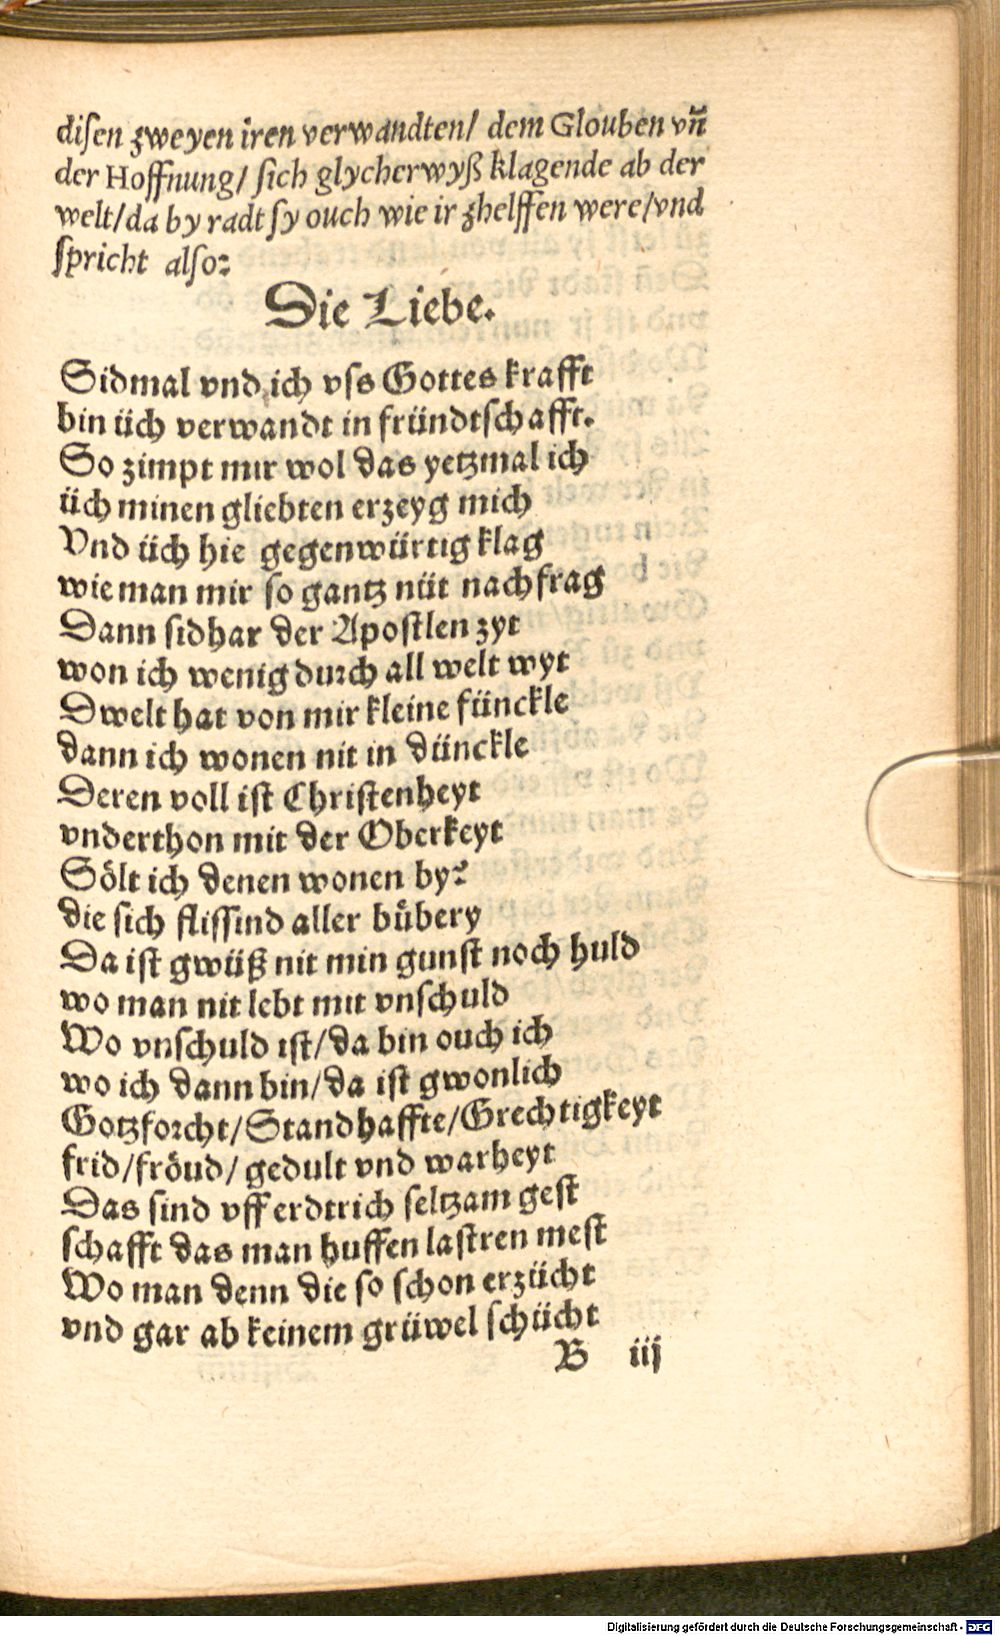 diſen zweyen iren verwandten/ dem Glouben vñ
der Hoffnung/ ſich glycherwyß klagende ab der
welt/da by radt ſy ouch wie ir zhelffen were/vnd
ſpricht alſo:
Die Liebe.
Sidmal vnd ich vſs Gottes krafft
bin üch verwandt in fründtſchafft.
So zimpt mir wol das yetzmal ich
üch minen gliebten erzeyg mich
Vnd üch hie gegenwürtig klag
wie man mir ſo gantz nüt nachfrag
Dann ſidhar der Apoſtlen zyt
won ich wenig durch all welt wyt
Dwelt hat von mir kleine fünckle
dann ich wonen nit in dünckle
Deren voll iſt Chriſtenheyt
vnderthon mit der Oberkeyt
Sölt ich denen wonen by?
die ſich fliſſind aller bůbery
Da iſt gwüß nit min gunſt noch huld
wo man nit lebt mit vnſchuld
Wo vnſchuld iſt/da bin ouch ich
wo ich dann bin/da iſt gwonlich
Gotzforcht/Standhaffte/Grechtigkeyt
frid/fröud/gedult vnd warheyt
Das ſind vff erdtrich ſeltzam geſt
ſchafft das man huffen laſtren meſt
Wo man denn die ſo ſchon erzücht
vnd gar ab keinem grüwel ſchücht
B iij
Digitalisierung gefördert durch die Deutsche Forschungsgemeinschaft - DFG